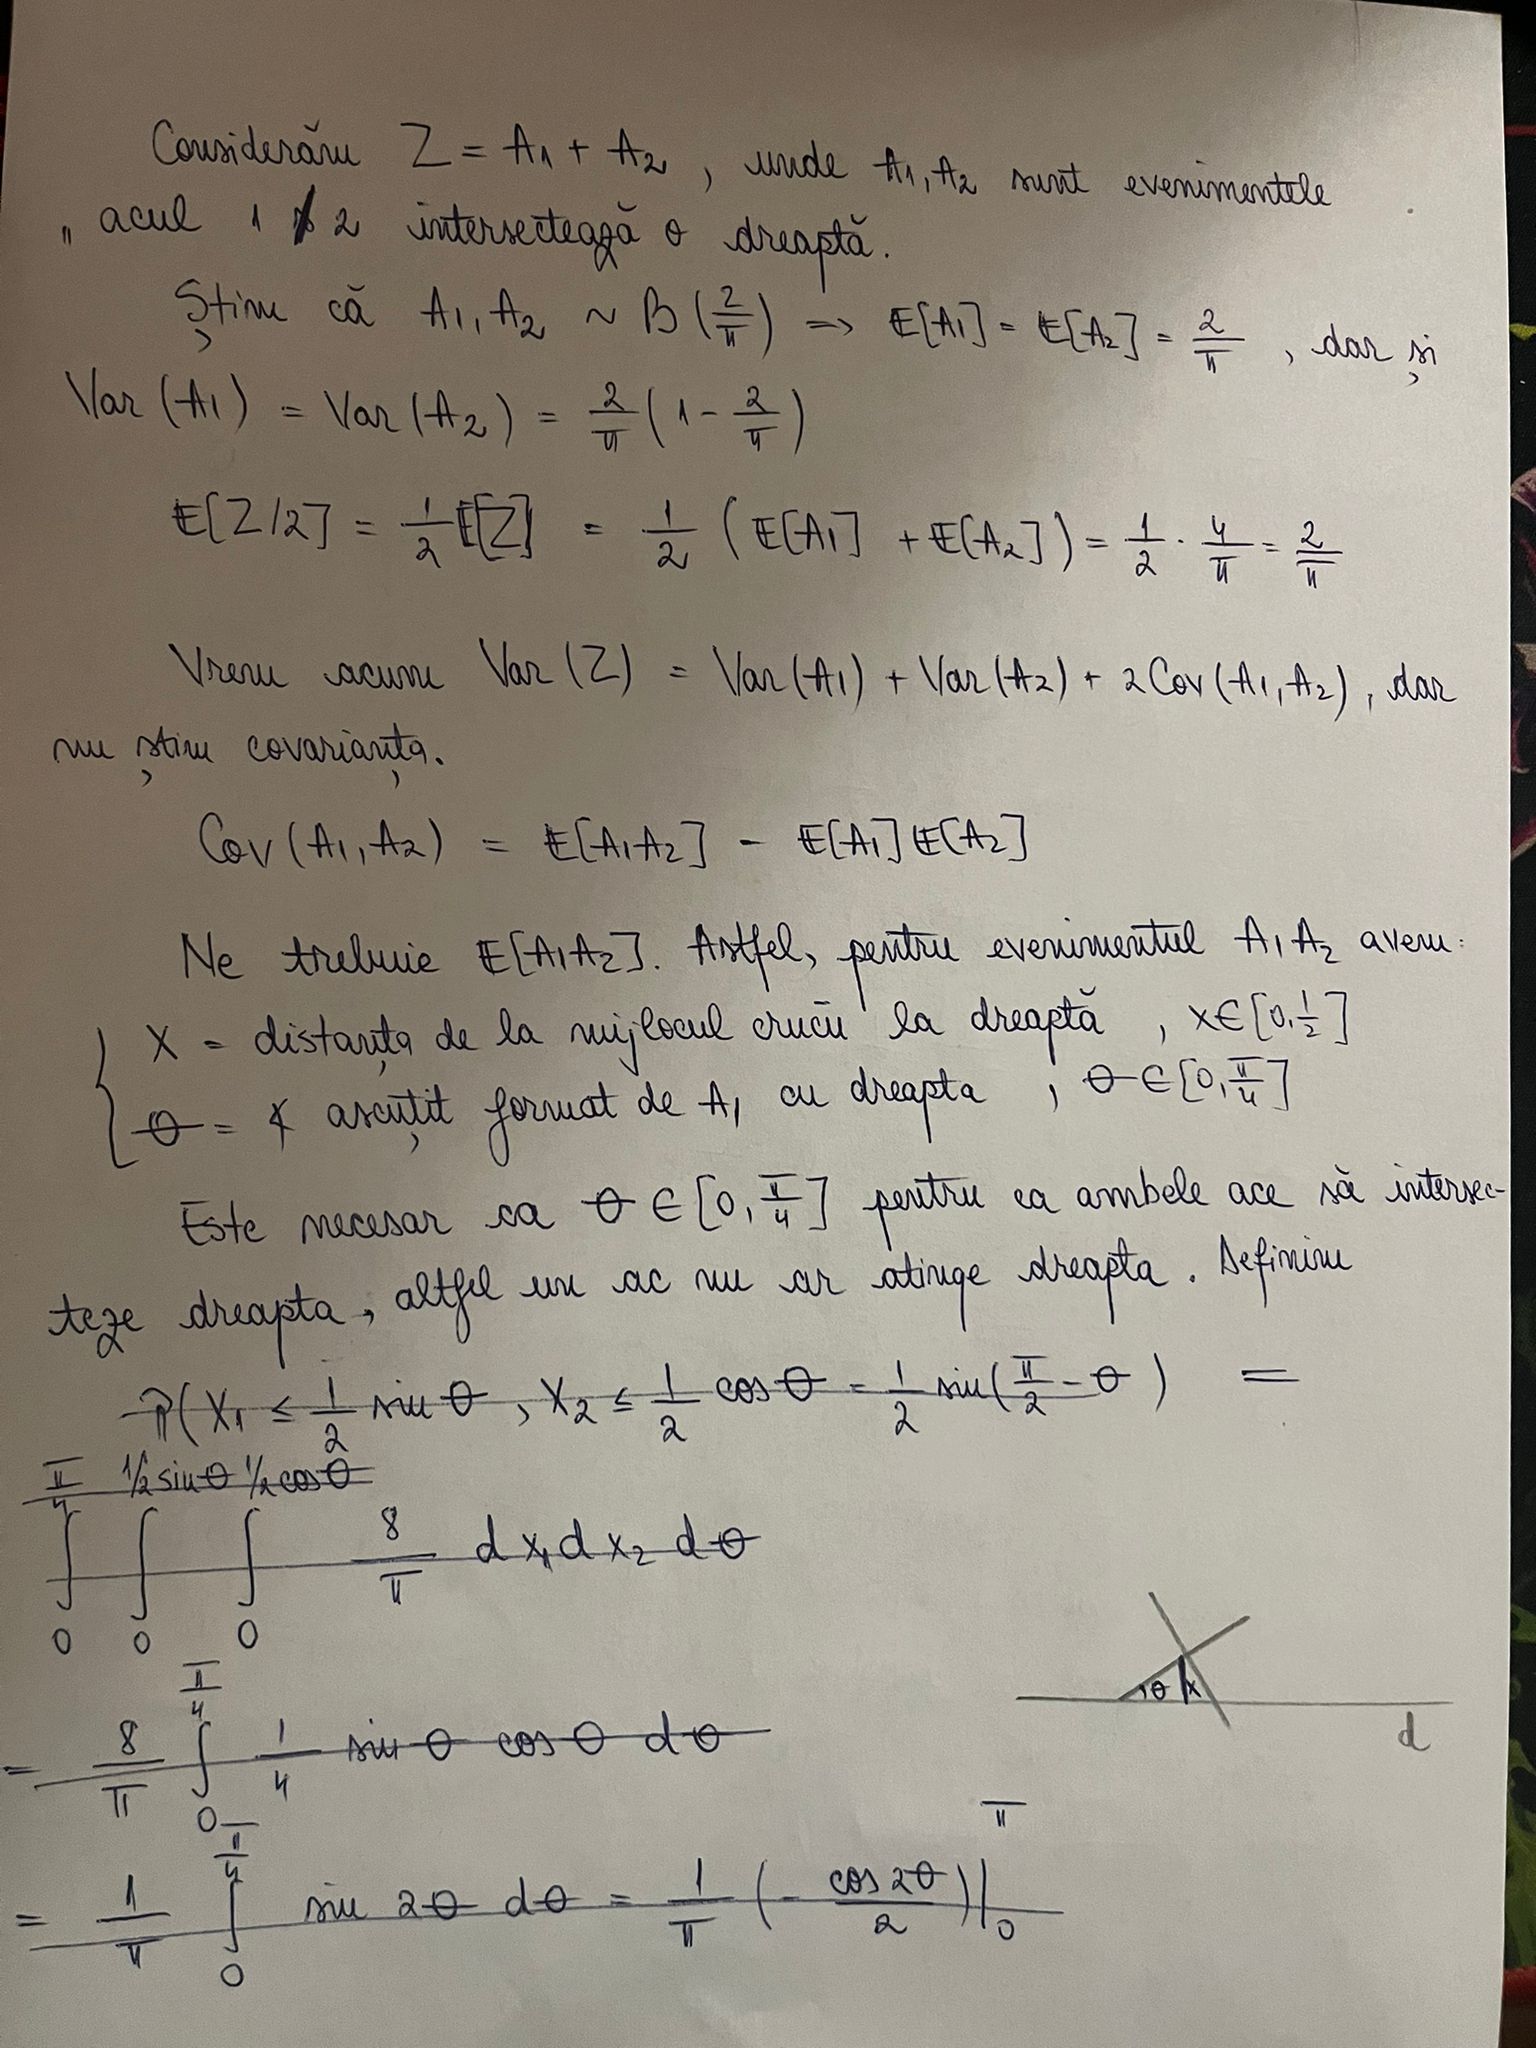 Considerăm Z = A1 + A2, unde A1, A2 sunt evenimentele
„ acul 1 / 2 intersectează o dreaptă.
Știm că A1, A2 ~ B(2/π) => E[A1] = E[A2] = 2/π, dar și
Var(A1) = Var(A2) = 2/π (1 - 2/π)
E[Z/2] = 1/2 E[Z] = 1/2 (E[A1] + E[A2]) = 1/2 · 4/π = 2/π
Vrem acum Var(Z) = Var(A1) + Var(A2) + 2Cov(A1, A2), dar
nu știm covarianța.
Cov(A1, A2) = E[A1A2] - E[A1]E[A2]
Ne trebuie E[A1A2]. Astfel, pentru evenimentul A1A2 avem:
X = distanța de la mijlocul crucii la dreaptă, x∈[0, 1/2]
θ = ∢ ascuțit format de A1 cu dreapta, θ∈[0, π/4]
Este necesar ca θ∈[0, π/4] pentru ca ambele ace să intersec-
teze dreapta, altfel un ac nu ar atinge dreapta. Definim
P(X1 ≤ 1/2 sin θ, X2 ≤ 1/2 cos θ = 1/2 sin(π/2 - θ)) =
∫_0^{π/4} ∫_0^{1/2 sin θ} ∫_0^{1/2 cos θ} 8/π dx1 dx2 dθ
= 8/π ∫_0^{π/4} 1/4 sin θ cos θ dθ
θ x
d
π
= 1/π ∫_0^{π/4} sin 2θ dθ = 1/π (- cos 2θ / 2)|_0